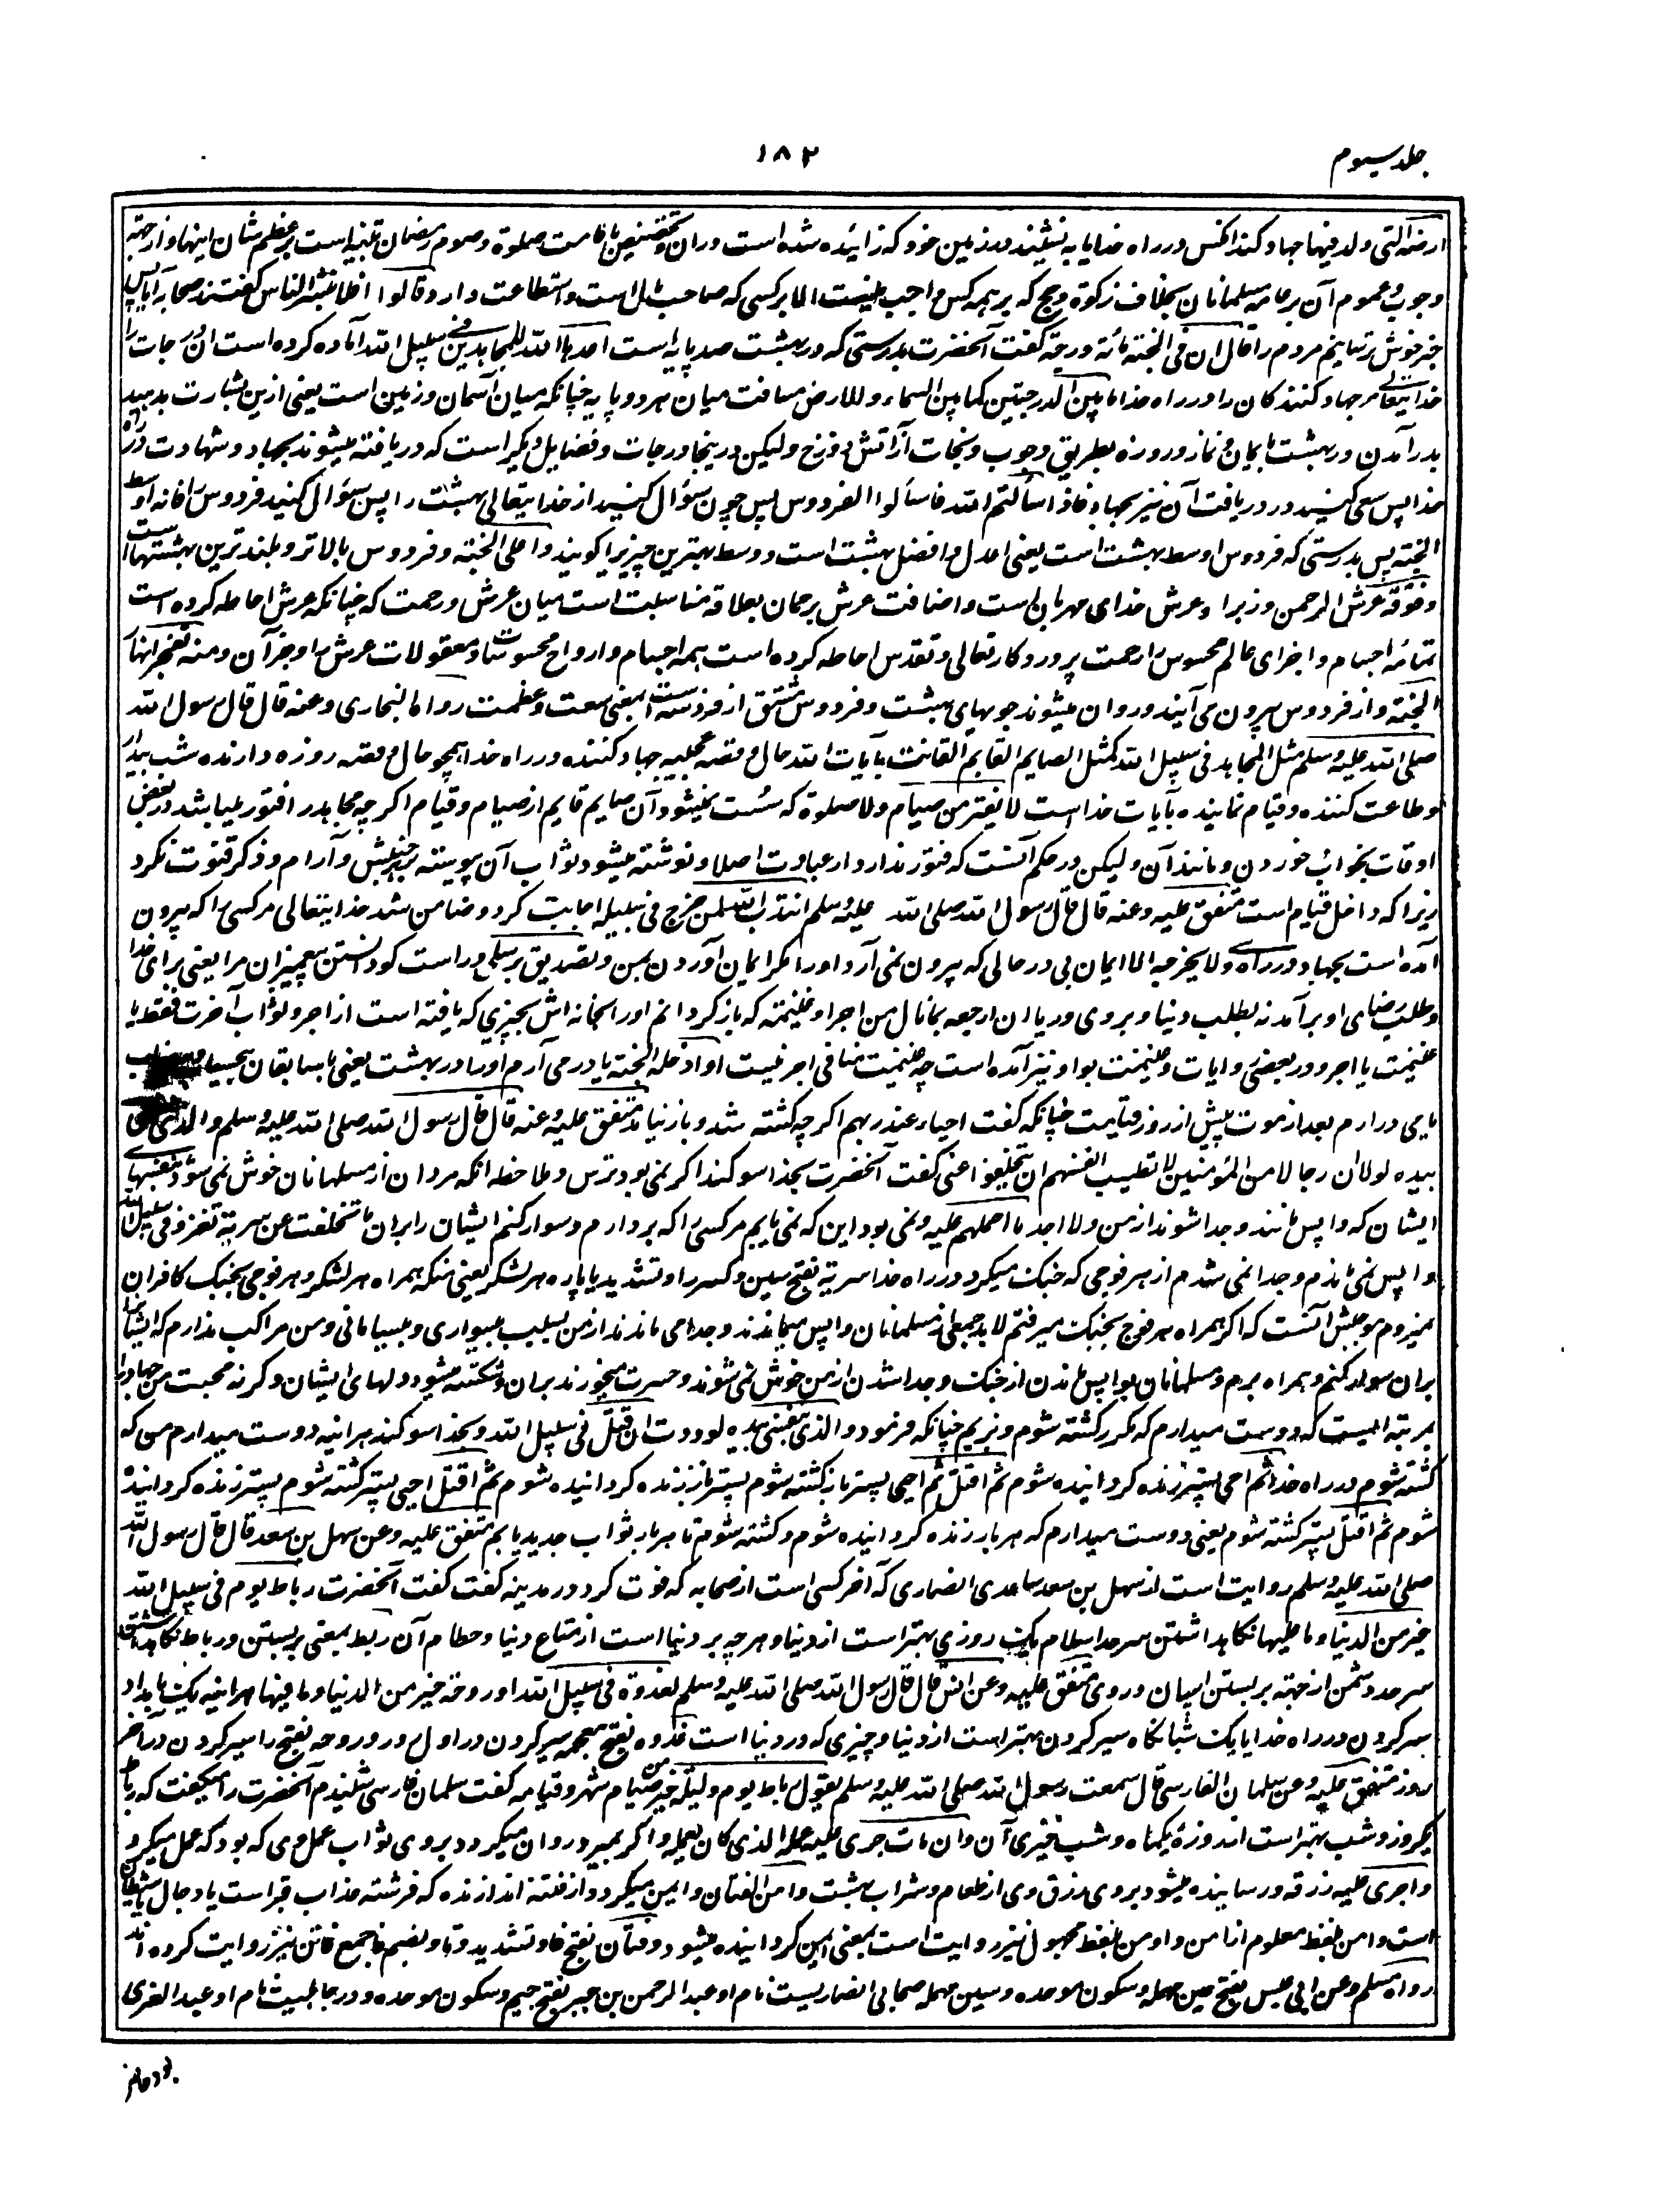 جلد سیوم
۱۸۲
ارضه التی ولد فیها جهاد کند آنکس در راه خدا یا بنشیند در زمین خود که زائیده شده است دران و تخصیص باقامت صلوة و صوم رمضان تنبیه است بر عظم شان اینها و از جهة
وجوب و عموم آن بر عامه مسلمانان بخلاف زکوة و حج که بر همه کس واجب نیست الا بر کسی که صاحب مال است و استطاعت دارد قالوا افلا نبشر الناس گفتند صحابه آیا پس
خبر خوش نرسانیم مردم را قال ان فی الجنة مائة درجة گفت آنحضرت بدرستی که در بهشت صد پایه است اعدها الله للمجاهدین فی سبیل الله آماده کرده است آن درجات را
خدایتعالی مر جهاد کنندگان را در راه خدا ما بین الدرجتین کما بین السماء و الارض مسافت میان هر دو پایه چنانکه میان آسمان و زمین است یعنی ازین بشارت بدهید
بدرآمدن در بهشت بایمان و نماز و روزه بطریق وجوب و نجات از آتش دوزخ ولیکن درینجا درجات و فضایل دیگر است که دریافته میشوند بجهاد و شهادت در راه
خدا پس سعی کنید در دریافت آن نیز بجهاد فاذا سألتم الله فاسألوا الفردوس پس چون سؤال کنید از خدایتعالی بهشت را پس سؤال کنید فردوس را فانه اوسط
الجنة پس بدرستی که فردوس اوسط بهشت است یعنی اعدل و افضل بهشت است و وسط بهترین چیز را گویند و اعلی الجنة و فردوس بالاتر و بلندترین بهشتها است
و فوقه عرش الرحمن و زبر او عرش خدای مهربان است و اضافت عرش برحمان بعلاقه مناسبت است میان عرش و رحمت که چنانکه عرش احاطه کرده است
تمامه اجسام و اجزای عالم محسوس را رحمت پروردگار تعالی و تقدس احاطه کرده است همه اجسام و ارواح محسوسات و معقولات عرش را و جز آن و منه تفجر انهار
الجنة و از فردوس بیرون می آیند و روان میشوند جویهای بهشت و فردوس مشتق از فردست است بمعنی سعت و عظمت رواه البخاری و عنه قال قال رسول الله
صلی الله علیه وسلم مثل المجاهد فی سبیل الله کمثل الصایم القایم القانت بآیات الله حال و قصه عجیبه جهاد کننده در راه خدا همچو حال و قصه روزه دارنده شب بیدار
و طاعت کننده و قیام نماینده بآیات خدا است لا یفتر من صیام و لا صلوة که سست نمیشود آن صایم قایم از صیام و قیام اگرچه مجاهد را فتور میباشد در بعض
اوقات بخواب خوردن و مانند آن ولیکن در حکم آنست که فتور ندارد از عبادت اصلا و نوشته میشود ثواب آن پیوسته بر جنبش و آرام و ذکر قنوت نکرد
زیرا که داخل قیام است متفق علیه و عنه قال قال رسول الله صلی الله علیه وسلم انتدب الله لمن خرج فی سبیله اجابت کرد و ضامن شد خدایتعالی مر کسی را که بیرون
آمده است بجهاد در راه وی ولا یخرجه الا ایمان بی در حالی که بیرون نمی آرد او را مگر ایمان آوردن بمن و تصدیق برسلی و راست گو دانستن پیغمبران مرا یعنی برای خدا
و طلب رضای او برآمد نه بطلب دنیا و بر وی و ریا ان ارجعه بما نال من اجر او غنیمة که باز گردانم او را بخانه اش بچیزی که یافته است از اجر و ثواب آخرت فقط یا
غنیمت با اجر و در بعضی روایات و غنیمت بواو نیز آمده است چه غنیمت منافی اجر نیست او ادخله الجنة یا در می آرم او را در بهشت یعنی با سابقان بیحساب
یا می درآرم بعد از موت پیش از روز قیامت چنانکه گفت احیاء عند ربهم اگرچه کشته شد و باز نیامد متفق علیه و عنه قال قال رسول الله صلی الله علیه وسلم والذی نفسی
بیده لولا ان رجالا من المؤمنین لا تطیب انفسهم ان یتخلفوا عنی گفت آنحضرت بخدا سوگند اگر نمی بود ترس و ملاحظه آنکه مردان از مسلمانان خوش نمی شود نفسهای
ایشان که واپس مانند و جدا شوند از من ولا اجد ما احملهم علیه و نمی بود این که نمی یابم مر کسی را که بردارم و سوار کنم ایشان را بران ما تخلفت عن سریة تغزو فی سبیل الله
واپس نمی ماندم و جدا نمی شدم از هر فوجی که جنگ میکرد در راه خدا سریة بفتح سین و کسر را و تشدید یا پاره لشکر یعنی منکه همراه هر لشکر و هر فوجی بجنگ کافران
نمیروم موجبش آنست که اگر همراه هر فوج بجنگ میرفتم لابد جمعی از مسلمانان واپس میماندند و جدا می ماندند از من بسبب بیسواری و بیسامانی و من مراکب ندارم که ایشانرا
بران سوار کنم و همراه برم و مسلمانان بواپس ماندن از جنگ و جدا شدن از من خوش نمی شوند و حسرت میخورند بران و شکسته میشود دلهای ایشان و گرنه محبت من جهاد را
بمرتبه ایست که دوست میدارم که مکرر کشته شوم و بزیم چنانکه فرمود والذی نفسی بیده لوددت ان اقتل فی سبیل الله و بخدا سوگند هر آئینه دوست میدارم من که
کشته شوم در راه خدا ثم احی پستر زنده گردانیده شوم ثم اقتل ثم احیی پستر باز کشته شوم پستر باز زنده گردانیده شوم ثم اقتل احیی پستر کشته شوم پستر زنده گردانیده
شوم ثم اقتل پستر کشته شوم یعنی دوست میدارم که هر بار زنده گردانیده شوم و کشته شوم تا هر بار ثواب جدید یابم متفق علیه و عن سهل بن سعد قال قال رسول الله
صلی الله علیه وسلم روایت است از سهل بن سعد ساعدی انصاری که آخر کسی است از صحابه که فوت کرد در مدینه گفت گفت آنحضرت رباط یوم فی سبیل الله
خیر من الدنیا وما علیها نگاهداشتن سرحد اسلام یک روزی بهتر است از دنیا و هرچه بر دنیا است از متاع دنیا و حطام آن ربط بمعنی بربستن و رباط نگاهداشتن
سرحد دشمن از جهة بربستن اسپان در وی متفق علیه و عن انس قال قال رسول الله صلی الله علیه وسلم لغدوة فی سبیل الله او روحة خیر من الدنیا وما فیها هر آئینه یک بامداد
سیر کردن در راه خدا یا یک شبانگاه سیر کردن بهتر است از دنیا و چیزی که در دنیا است غدوه بفتح معجمه سیر کردن در اول روز و روحه بفتح را سیر کردن در آخر
روز متفق علیه و عن سلمان الفارسی قال سمعت رسول الله صلی الله علیه وسلم یقول رباط یوم ولیلة خیر من صیام شهر وقیامه گفت سلمان فارسی شنیدم آنحضرت را میگفت که رباط
یکروز و شب بهتر است از روزه یکماه و شب خیزی آن وان مات جری علیه عمله الذی کان یعمله و اگر بمیرد روان میگردد بر وی ثواب عمل وی که بود که عمل میکرد
واجری علیه رزقه و رسانیده میشود بر وی رزق وی از طعام و شراب بهشت وامن الفتان و ایمن میگردد از فتنه اندازنده که فرشته عذاب قبر است یا دجال یا شیطان
است وامن بلفظ معلوم از امن و اومن بلفظ مجهول نیز روایت است بمعنی ایمن گردانیده میشود و فتان بفتح فا و تشدید تا و بضم فا جمع فاتن نیز روایت کرده اند
رواه مسلم و عن ابی عبس بفتح عین مهمله و سکون موحده و سین مهمله صحابی انصاریست نام او عبد الرحمن بن جبر بفتح جیم و سکون موحده و در جاهلیت نام او عبد العزی